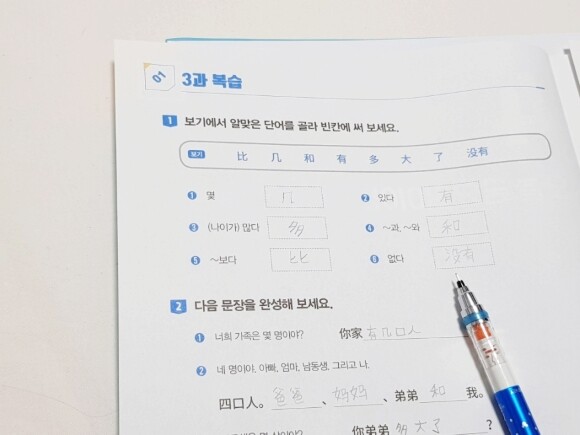 01 3과 복습
1 보기에서 알맞은 단어를 골라 빈칸에 써 보세요.
보기 比 几 和 有 多 大 了 没有
1 몇 几 2 있다 有
3 (나이가) 많다 多 4 ~과, ~와 和
5 ~보다 比 6 없다 没有
2 다음 문장을 완성해 보세요.
1 너희 가족은 몇 명이야? 你家 有几口人
2 네 명이야. 아빠, 엄마, 남동생, 그리고 나.
四口人。 爸爸 、 妈妈 、弟弟 和 我。
你弟弟 多大了 ?